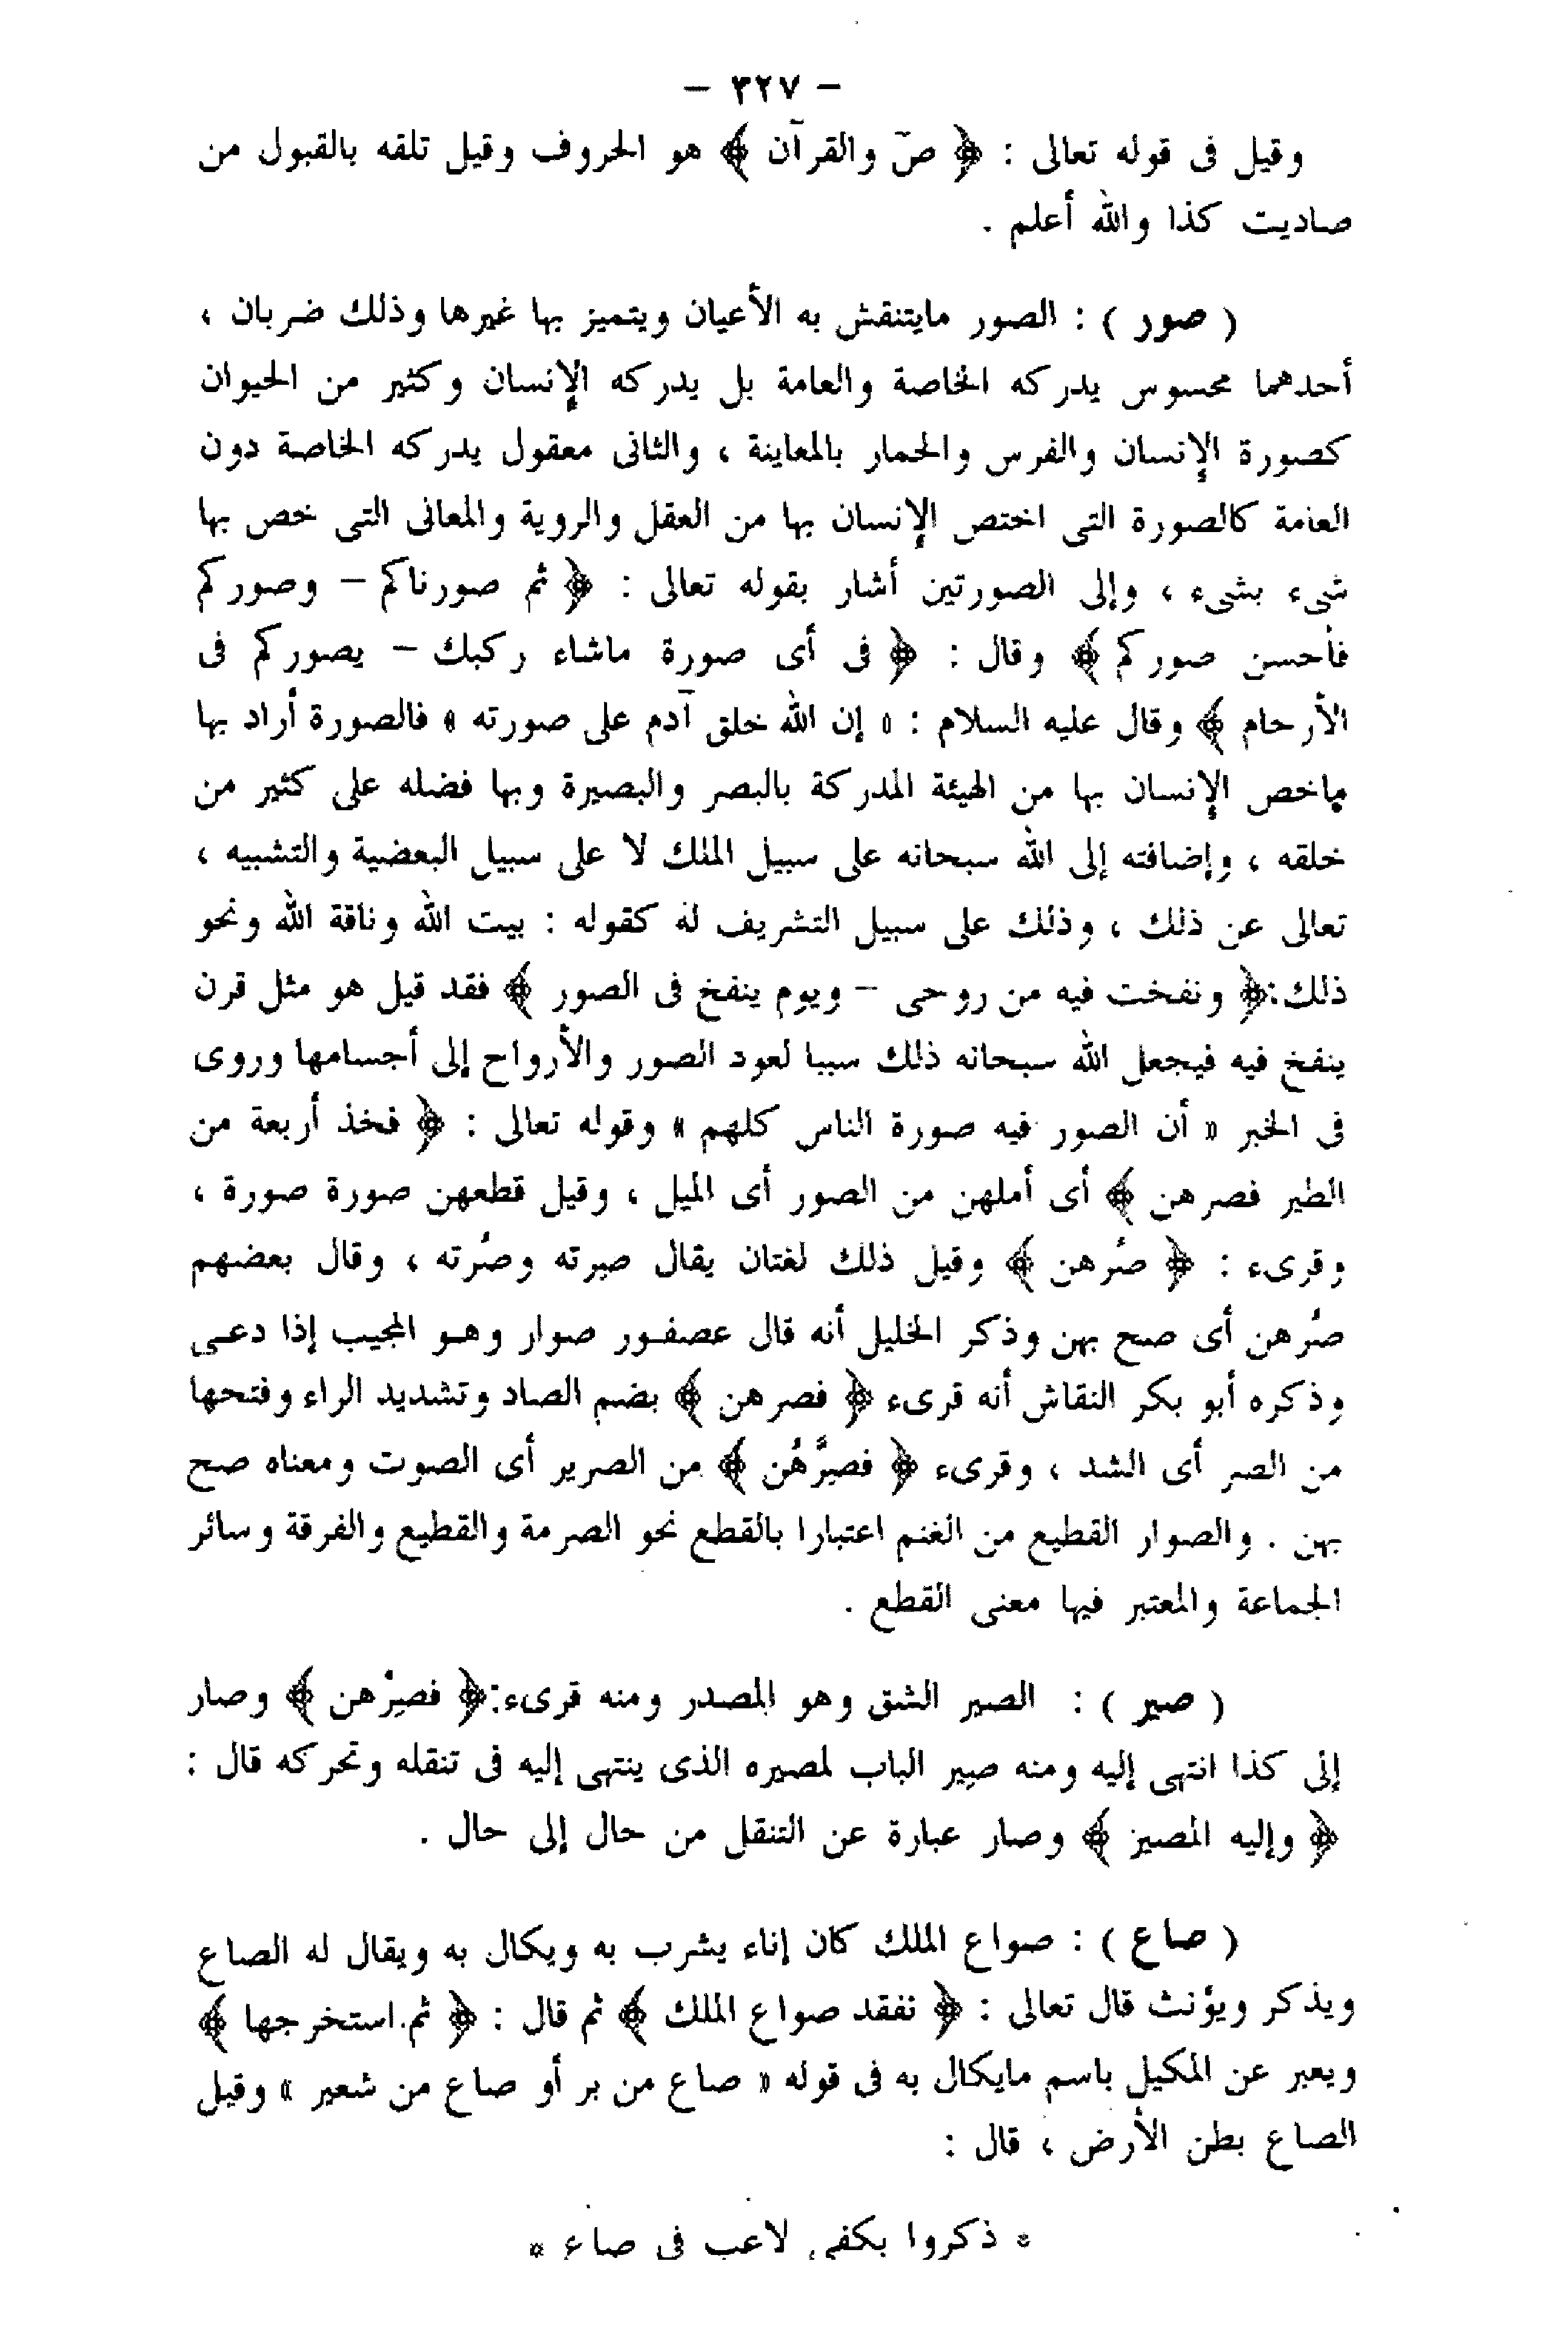 - ٣٢٧ -
وقيل فى قوله تعالى : ﴿ صۤ والقرآن ﴾ هو الحروف وقيل تلقه بالقبول من
صاديت كذا والله أعلم .
( صور ) : الصور ماينتقش به الأعيان ويتميز بها غيرها وذلك ضربان ،
أحدهما محسوس يدركه الخاصة والعامة بل يدركه الإنسان وكثير من الحيوان
كصورة الإنسان والفرس والحمار بالمعاينة ، والثانى معقول يدركه الخاصة دون
العامة كالصورة التى اختص الإنسان بها من العقل والروية والمعانى التى خص بها
شىء بشىء ، وإلى الصورتين أشار بقوله تعالى : ﴿ ثم صورناكم - وصوركم
فأحسن صوركم ﴾ وقال : ﴿ فى أى صورة ماشاء ركبك - يصوركم فى
الأرحام ﴾ وقال عليه السلام : « إن الله خلق آدم على صورته » فالصورة أراد بها
ماخص الإنسان بها من الهيئة المدركة بالبصر والبصيرة وبها فضله على كثير من
خلقه ، وإضافته إلى الله سبحانه على سبيل الملك لا على سبيل البعضية والتشبيه ،
تعالى عن ذلك ، وذلك على سبيل التشريف له كقوله : بيت الله وناقة الله ونحو
ذلك : ﴿ ونفخت فيه من روحى - ويوم ينفخ فى الصور ﴾ فقد قيل هو مثل قرن
ينفخ فيه فيجعل الله سبحانه ذلك سببا لعود الصور والأرواح إلى أجسامها وروى
فى الخبر « أن الصور فيه صورة الناس كلهم » وقوله تعالى : ﴿ فخذ أربعة من
الطير فصرهن ﴾ أى أملهن من الصور أى الميل ، وقيل قطعهن صورة صورة ،
وقرىء : ﴿ صُرهن ﴾ وقيل ذلك لغتان يقال صِرته وصُرته ، وقال بعضهم
صُرهن أى صح بهن وذكر الخليل أنه قال عصفور صوار وهو المجيب إذا دعى
وذكره أبو بكر النقاش أنه قرىء ﴿ فصرهن ﴾ بضم الصاد وتشديد الراء وفتحها
من الصر أى الشد ، وقرىء ﴿ فصِرَّهُن ﴾ من الصرير أى الصوت ومعناه صح
بهن . والصوار القطيع من الغنم اعتبارا بالقطع نحو الصرمة والقطيع والفرقة وسائر
الجماعة والمعتبر فيها معنى القطع .
( صير ) : الصير الشق وهو المصدر ومنه قرىء : ﴿ فصِرْهن ﴾ وصار
إلى كذا انتهى إليه ومنه صير الباب لمصيره الذى ينتهى إليه فى تنقله وتحركه قال :
﴿ وإليه المصير ﴾ وصار عبارة عن التنقل من حال إلى حال .
( صاع ) : صواع الملك كان إناء يشرب به ويكال به ويقال له الصاع
ويذكر ويؤنث قال تعالى : ﴿ نفقد صواع الملك ﴾ ثم قال : ﴿ ثم استخرجها ﴾
ويعبر عن المكيل باسم مايكال به فى قوله « صاع من بر أو صاع من شعير » وقيل
الصاع بطن الأرض ، قال :
* ذكروا بكفى لاعب فى صاع *